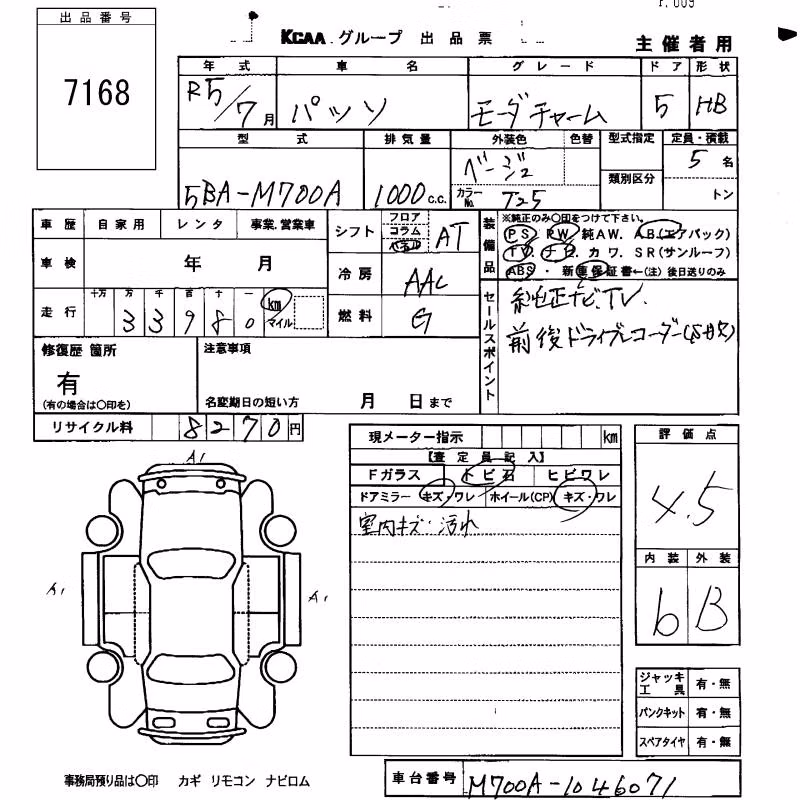 出品番号
7168
KCAA グループ 出品票
主催者用
年式 車名 グレード ドア 形状
R5/7月 パッソ モーダチャーム 5 HB
型式 排気量 外装色 色替 型式指定 定員・積載
5BA-M700A 1000c.c. ベージュ 5名
カラーNo. T25 類別区分 トン
車歴 自家用 レンタ 事業.営業車
車検 年 月
走行 十万 万 千 百 十 一
33980 km マイル
シフト フロア コラム AT
冷房 AAC
燃料 G
装備品 ※純正のみ〇印をつけて下さい。
PS PW 純AW. A.B.(エアバック)
TV ナビ カワ. SR(サンルーフ)
ABS・新車保証書←(注)後日送りのみ
セールスポイント
純正ナビ.TV.
前後ドライブレコーダー
修復歴 箇所
有
(有の場合は〇印を)
注意事項
名変期日の短い方 月 日まで
リサイクル料 8270円
現メーター指示 km
【査定員記入】
Fガラス トビ石 ヒビワレ
ドアミラー キズ・ワレ ホイール(CP) キズ・ワレ
室内キズ・汚れ
評価点
4.5
内装 外装
b B
ジャッキ工具 有・無
パンクキット 有・無
スペアタイヤ 有・無
A1
A1
A1
事務局預り品は〇印 カギ リモコン ナビロム
車台番号 M700A-1046071